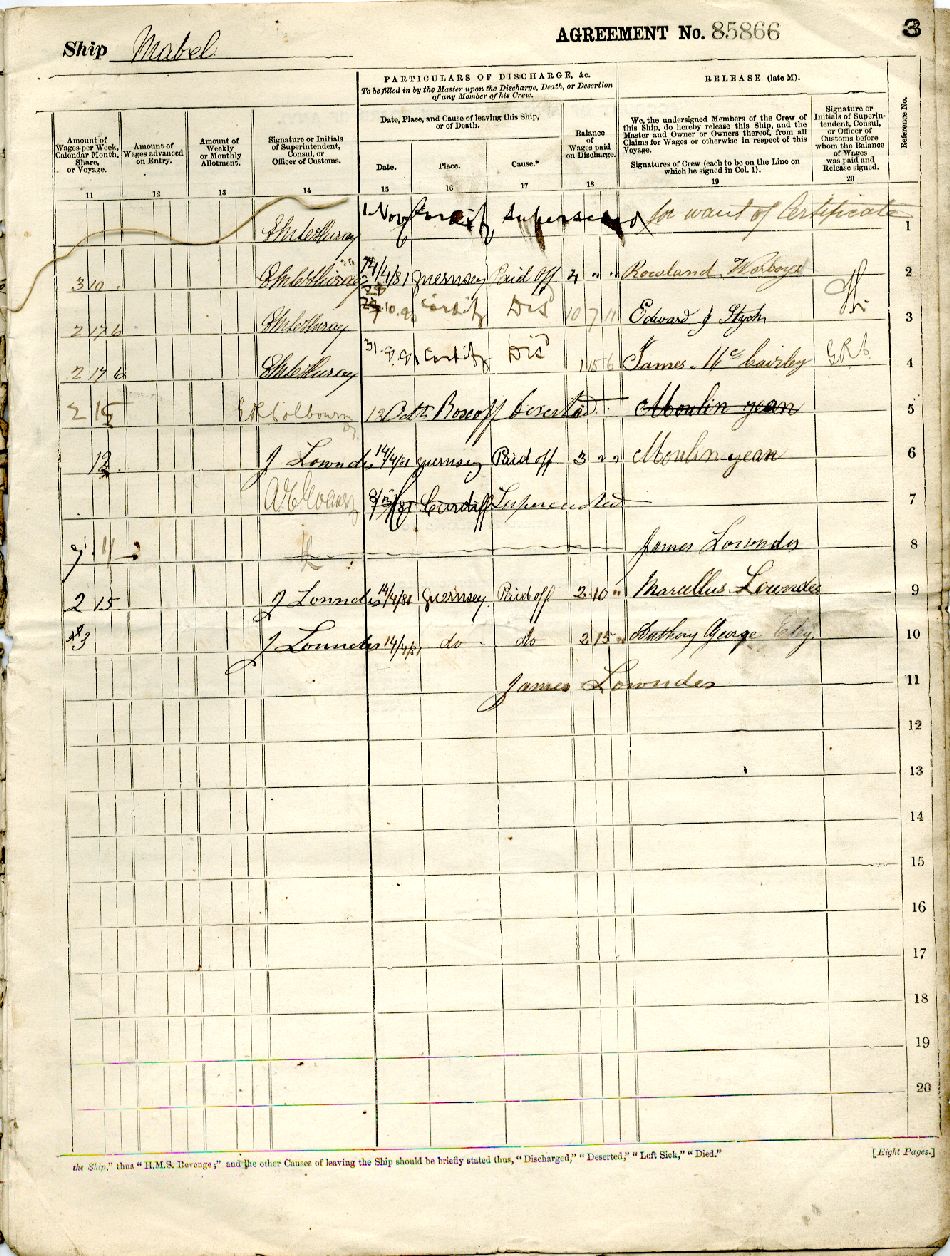 Ship Mabel
AGREEMENT No. 85866
3
PARTICULARS OF DISCHARGE, &c.
To be filled in by the Master upon the Discharge, Death, or Desertion of any Member of his Crew.
RELEASE (late M).
Amount of Wages per Week, Calendar Month, Share, or Voyage.
Amount of Wages Advanced on Entry.
Amount of Weekly or Monthly Allotment.
Signature or Initials of Superintendent, Consul, or Officer of Customs.
Date, Place, and Cause of leaving this Ship, or of Death.
Date.
Place.
Cause.*
Balance of Wages paid on Discharge.
We, the undersigned Members of the Crew of this Ship, do hereby release this Ship, and the Master and Owner or Owners thereof, from all Claims for Wages or otherwise in respect of this Voyage.
Signatures of Crew (each to be on the Line on which he signed in Col. 1).
Signature or Initials of Superintendent, Consul, or Officer of Customs before whom the Balance of Wages was paid and Release signed.
Reference No.
11 12 13 14 15 16 17 18 19 20
1 Nov Cardiff Superseded for want of Certificate 1
3 10 Guernsey Paid off 4 " " Rowland 2
2 17 6 Cardiff Dis 10 7 11 Edward J 3
2 17 6 31 Cardiff Dis 1 15 6 James 4
2 15 12 Octr Roscoff Deserted Moulin yean 5
12 J Lowndes 14/4/81 Guernsey Paid off 3 " " Moulin yean 6
A E Evans Cardiff Superseded 7
James Lowndes 8
2 15 J Lowndes 14/4/81 Guernsey Paid off 2 10 " Marcellus Lowndes 9
3 J Lowndes 14/4/81 do do 2 15 " Anthony George 10
James Lowndes 11
12
13
14
15
16
17
18
19
20
the Ship," thus "H.M.S. Revenge;" and the other Causes of leaving the Ship should be briefly stated thus, "Discharged," "Deserted," "Left Sick," "Died."
[Eight Pages.]